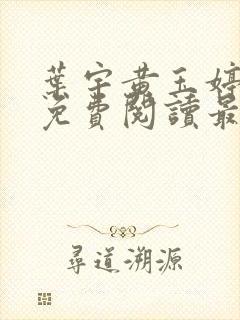 葉宇黃玉婷
免費閱讀最
尋道溯源